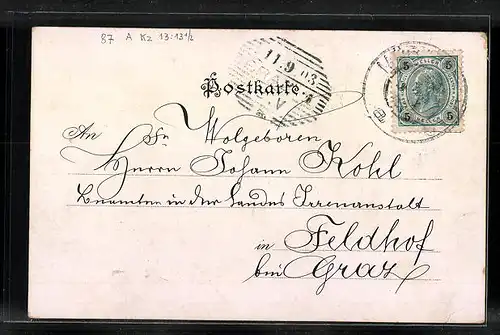 87 A Kz 13:13½
11.9 03
Postkarte.
5 HELLER 5
5 5
An Sr. Wolgeboren
Herrn Johann Kohl
Beamten in der Landes Irrenanstalt
in Feldhof
bei Graz